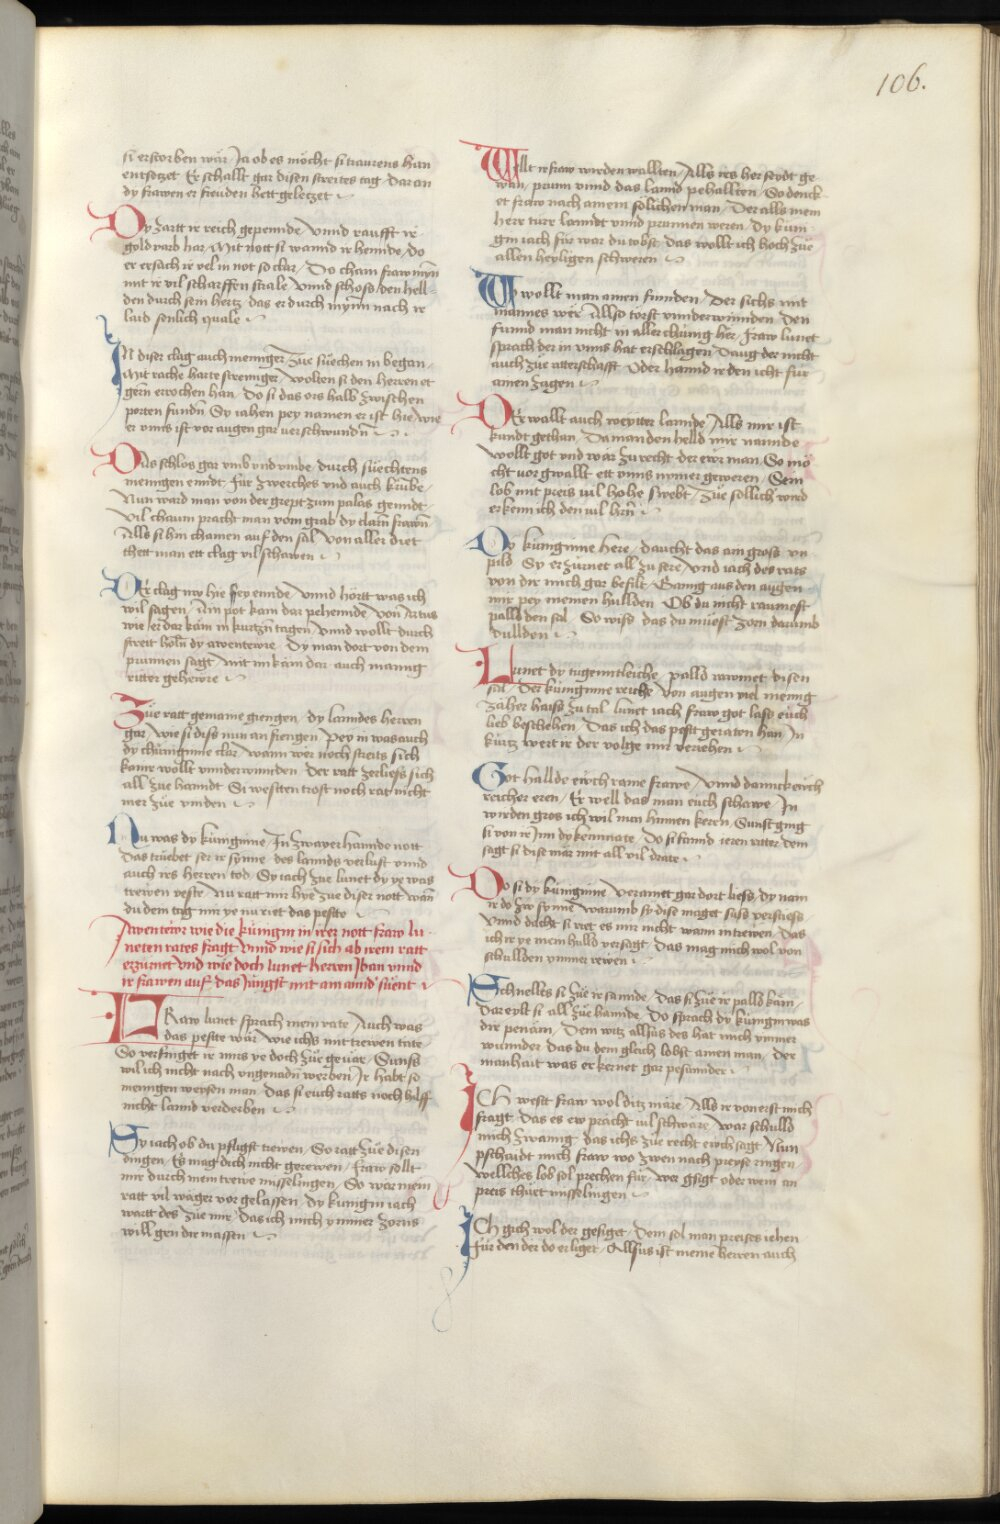 106.
si erstorben wär / Ja ob es möcht si traurens han
entsetzet Er schallt gar disen streites tag Dar an
dy frawen er freuden hett geletzet
Dy zartt ir reich gepennde Vnnd raufft ir
gold varb har / Mit nott si wannd ir hennde / do
er ersach ir vel in not so clar / Do cham fraw mynn
mit ir vil scharffen strale Vnnd schoss den hell-
den durch sein hertz das er durch mynn nach ir
laid senlich quale
In diser clag auch menniger zue suechen in began
Mit rache harte strenniger / wolten si den herren et
gern errochen han / Do si das ors halb zwischen
porten fundn Sy iahen pey namen er ist hie wie
er vnns ist vor augen gar verschwundn
Das schlos gar vmb vnd vmbe / durch suechtens
menngen enndt / fur zwerches vnd auch krumbe
Nun ward man von der grept zum palas genndt
Vil chaum pracht man vom grab dy clarn frawn
Alls si hin chamen auf den sal Von aller diet
thett man ett clag vil schawen
Der clag mv hie sey ennde Vnnd hörtt was ich
wil sagen / ain pot kam dar pehennde von Artus
wie er dar käm in kurtzn tagen / vnnd wollt durch
streit holn dy awentewr Dy man dort von dem
prunnen sagt / mit im käm dar auch mannig
ritter gehewre
Zue ratt gemaine giengen / dy lanndes herren
gar / wie si diss nun an fiengen / Pey in was auch
dy chünginne clar / wann wer noch streits sich
kainr wollt vnnderwinnden Der ratt zerliess sich
all zue hanndt Si westten trost noch rat nicht
mer zue vinden
Nu was dy künginne / In zwayer hannde nott
Das truebet ser ir synne des lannds verlust vnnd
auch irs herren tod / Sy iach zue lunet dy ye was
trewen veste / Nu ratt mir hye zue diser nott wan
du dem tag mir ye nu riet das peste
Awentewr wie die küngin in irer nott fraw lu-
neten rates fragt Vnnd wie si sich ab irem ratt
erzürnet vnd wie doch lunet herren Iban vnnd
ir frawen auf das Jungst mit ainannd suent
FRaw lunet sprach mein rate / Auch was
das peste wär wie ichs mit trewen tate
So verfinget ir mirs ye doch zue geuär / Sunst
wil ich nicht nach vngenadn werben / Ir habt so
menngen weysen man das si euch ratts noch hilff
nicht lannd verderben
Sy iach ob du pfligst trewen / So ratt zue disen
dingen / Es mag dich nicht gerewen / fraw sollt
mir durch mein trewe misselingen / So wär mein
ratt vil wäger vor gelassen / dy küngin iach
wartt des zue mir / das ich mich ymmer zorns
will gen dir massen
Wellt ir fraw wirden wallten / Alls irs her seydt ge-
wan / prunn vnnd das lannd pehallten / So denck
et fraw nach ainem solichen man / Der alls mein
herr turr lanndt vnnd prunnen weren / Dy kün-
gin iach für war du tobst / das wollt ich hoch zue
allen heyligen schweren
Wo wollt man ainen finnden / Der sichs mit
mannes wer / Allso torst vnnderwinnden Den
funnd man nicht in aller chünig her / fraw lunet
sprach der in vnns hat erschlagen / Daug der nicht
auch zue ritterschafft Oder hannd ir den icht für
ainen zagen
Er wallt auch weytter lannde / Alls mir ist
kundt gethan / Da man den helld mir nannde
Wollt got vnd war zu recht der eror man / So mö-
cht vor gwallt ett vnns nymer geweren / Sein
lob mit preis vil hohe swebt / Zue sollich wird
erkenn ich den vil hern
Dy künginne here / daucht das ain gross vn-
pild Sy erzurnet all zu sere / Vnd iach des rats
von dir mich gar befilt / Ganng aus den augen
mir pey meinen hullden / Ob du nicht rawmest
palld den sal / So wiss das du muest zorn darumb
dullden
Lunet dy tugenntleiche / palld rawmet disen
sal / Der künginne reiche / Von augen viel mennig
zäher haiss zu tal / lunet iach fraw got lass euch
lieb beschehen / Das ich das pestt geraten han / In
kurtz wert ir der volge mir veriehen
Got hallde ewch raine frawe / Vnnd dannck ewch
reicher eren / Er well das man euch schawe / In
wirden gros ich wil nun hinnen keren / Sunst ging
si von ir Inn dy kemnate / Do si fannd ieren ritter dem
sagt si dise mär mit all vil drate
Do si dy künginne verainet gar dort liess / dy nam
ir do zw synne / Warumb sy dise maget suss verstiess
Vnnd dacht si riet es mir nicht wann in trewen / Das
ich ir ye mein hulld versagt / das mag mich wol von
schullden ymmer rewen
Schnelles si zue ir sannde / das si zue ir palld käm
Dar eylt si all zue hannde / Do sprach dy küngin was
dir penäm / Dein witz allsus des hat mich ymmer
wunnder / das du dem gleich lobst ainen man / Der
manhait was er kennet gar pesunnder
Ich westt fraw wol ditz märe / Alls ir von erst mich
fragt / das es ew prächt vil schware / war schulld
mich zwanng das ichs zue recht ewch sagt / Nun
pschaidt mich fraw wo zwen nach preyse ringen
Wellches lob sol prechen für / wer gsigt oder wem an
preis thurt misselingen
Ich gich wol der gesiget / Dem sol man preises iehen
für den der do erliget / Allsus ist meine herren auch